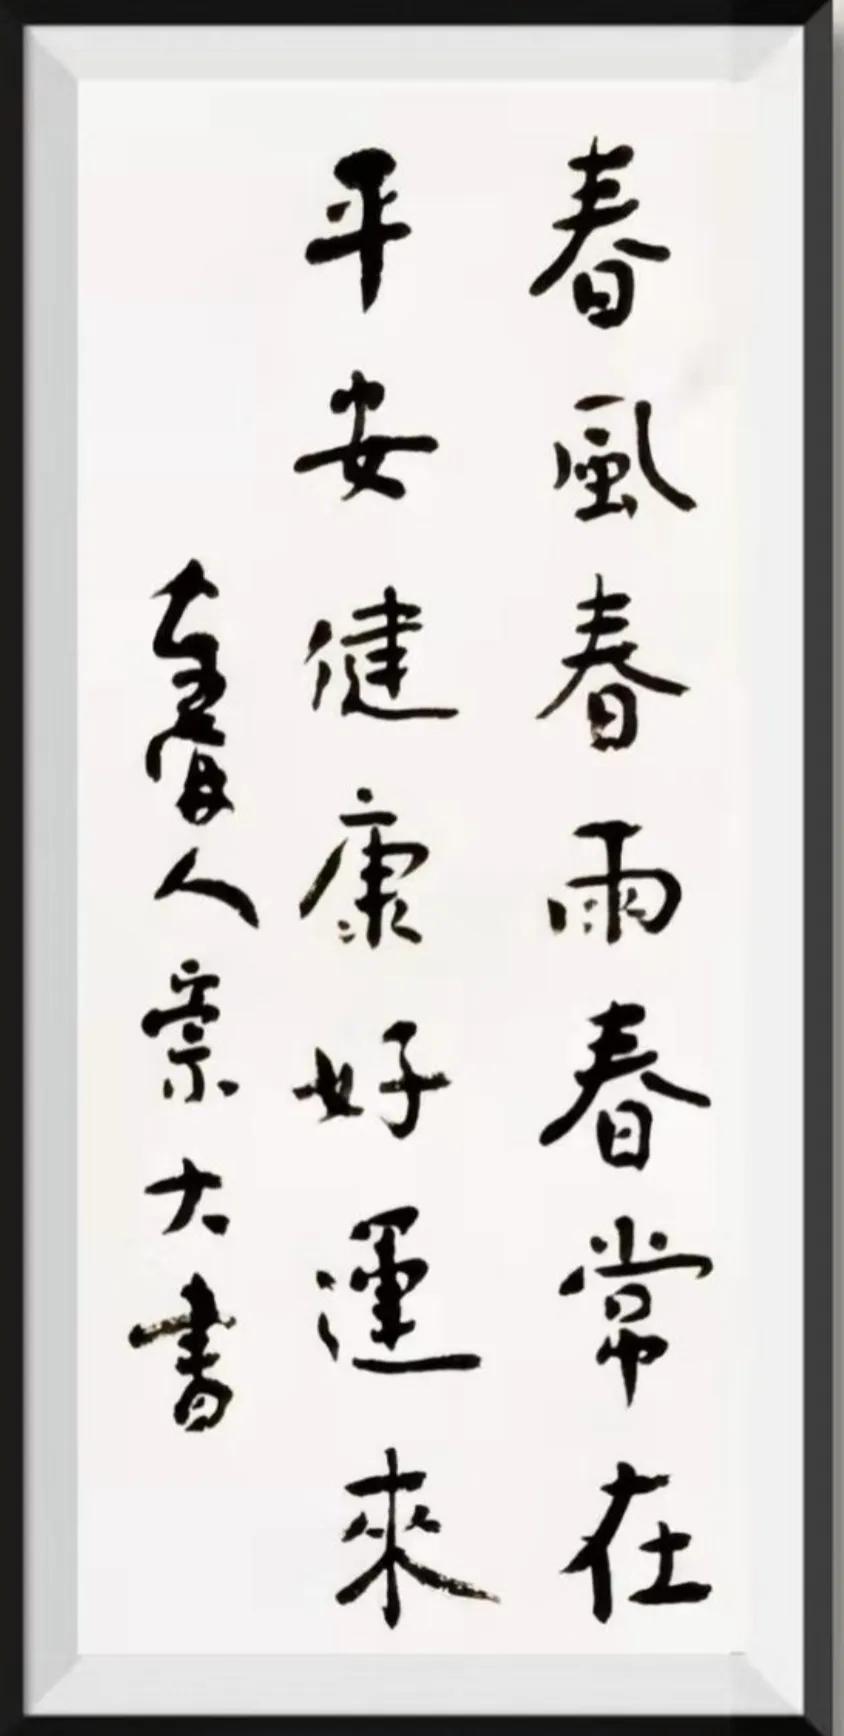 春風春雨春常在
平安健康好運來
人宗大書